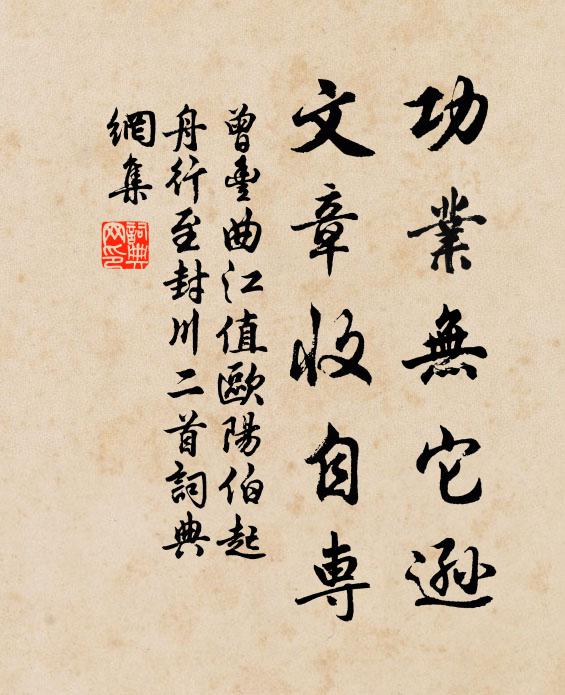 功業無它遜
文章收自専
曾豐曲江值歐陽伯起
舟行至封川二首詞典
網集
詞典
网印